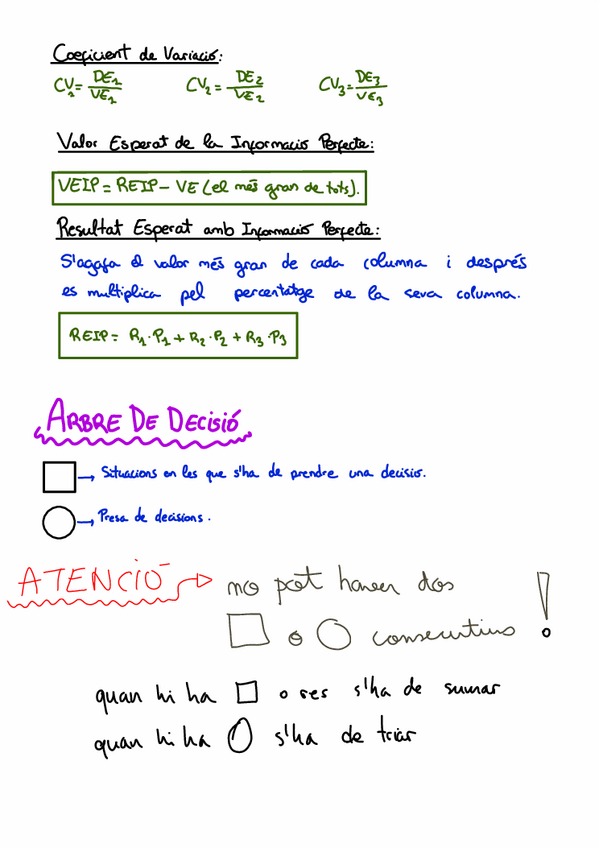 Coeficient de Variació:
CV₁ = DE₁/VE₁ CV₂ = DE₂/VE₂ CV₃ = DE₃/VE₃
Valor Esperat de la Informació Perfecte:
VEIP = REIP - VE (el més gran de tots).
Resultat Esperat amb Informació Perfecte:
S'agafa el valor més gran de cada columna i després
es multiplica pel percentatge de la seva columna.
REIP = R₁·P₁ + R₂·P₂ + R₃·P₃
ARBRE DE DECISIÓ
→ Situacions en les que s'ha de prendre una decisio.
→ Presa de decisions.
ATENCIÓ → no pot haver dos
□ o ○ consecutius !
quan hi ha □ o res s'ha de sumar
quan hi ha ○ s'ha de triar